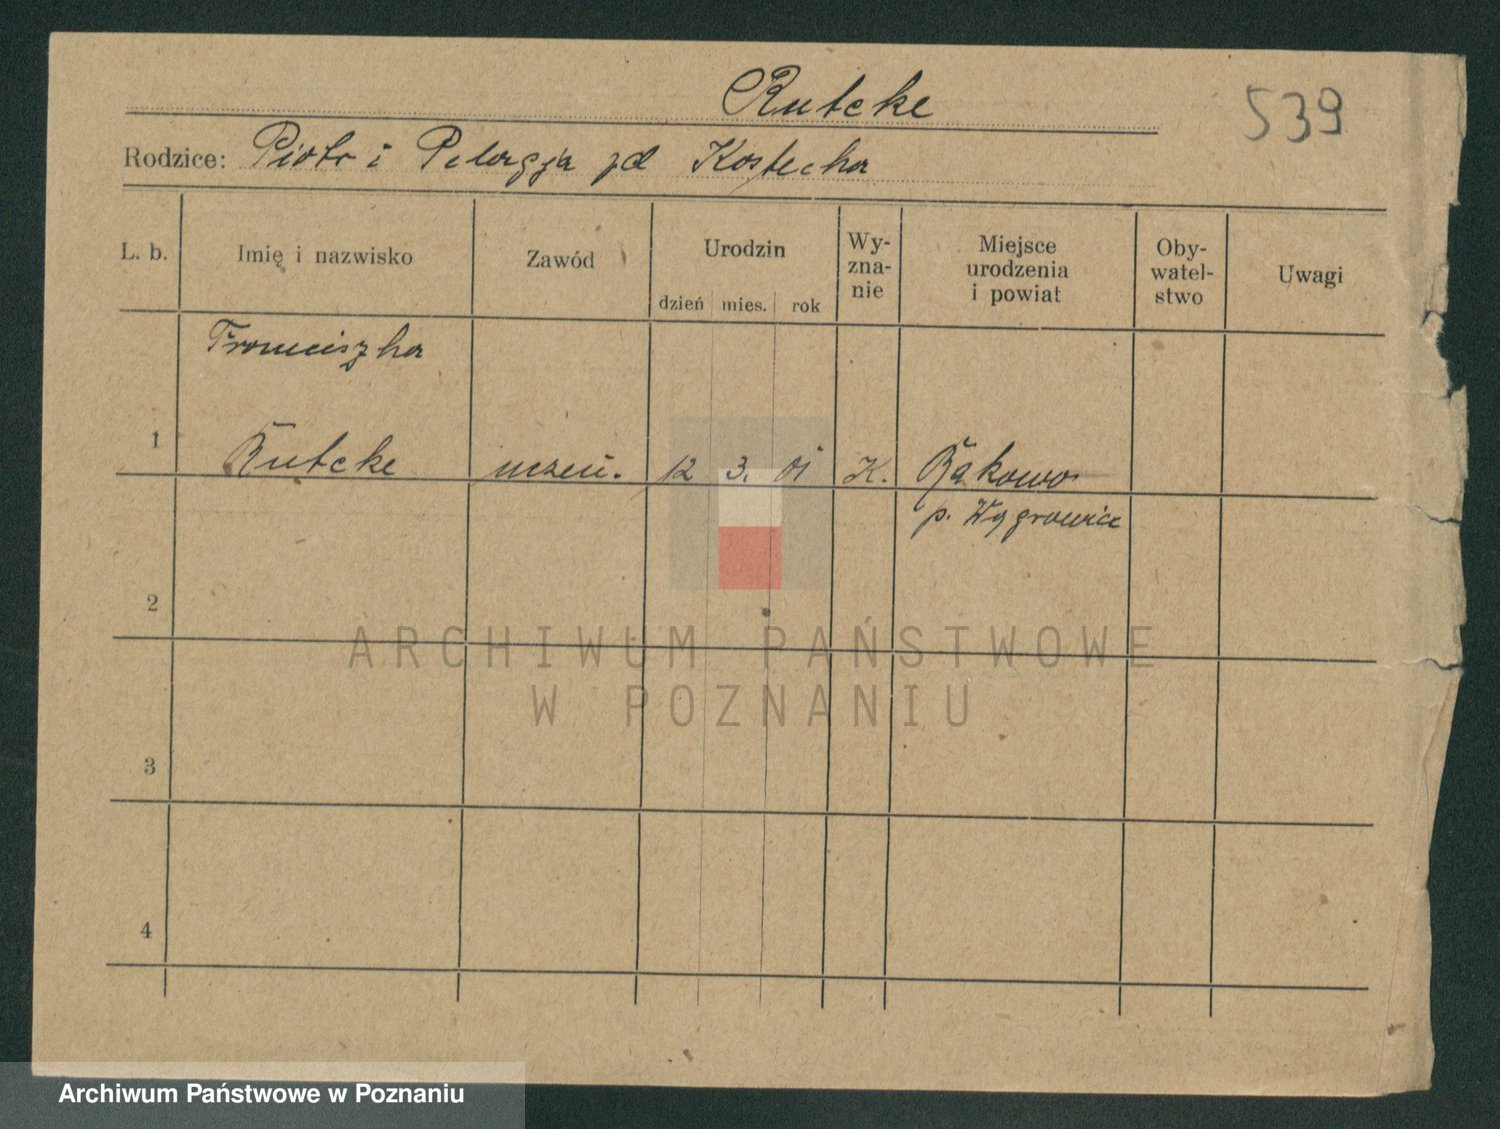 Rutcke
539
Rodzice: Piotr i Pelagja zd Kostecka
L. b.
Imię i nazwisko
Zawód
Urodzin
dzień mies. rok
Wy-
zna-
nie
Miejsce
urodzenia
i powiat
Oby-
watel-
stwo
Uwagi
Franciszka
1 Rutcke uczeń. 12 3. 01 K. Bąkowo
p. Wągrowiec
2
3
4
ARCHIWUM PAŃSTWOWE
W POZNANIU
Archiwum Państwowe w Poznaniu